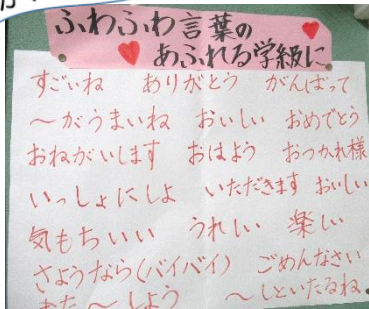 ふわふわ言葉の
あふれる学級に
すごいね ありがとう がんばって
～がうまいね おいしい おめでとう
おねがいします おはよう おつかれ様
いっしょにしよ いただきます おいしい
気もちいい うれしい 楽しい
さようなら(バイバイ) ごめんなさい
また～しよう ～しといたるね